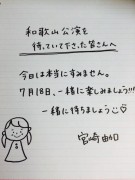 和歌山公演を
待っていて下さった皆さんへ
今日は本当にすみません。
7月18日、一緒に楽しみましょう!!!
一緒に待ちましょう♡
宮崎由加